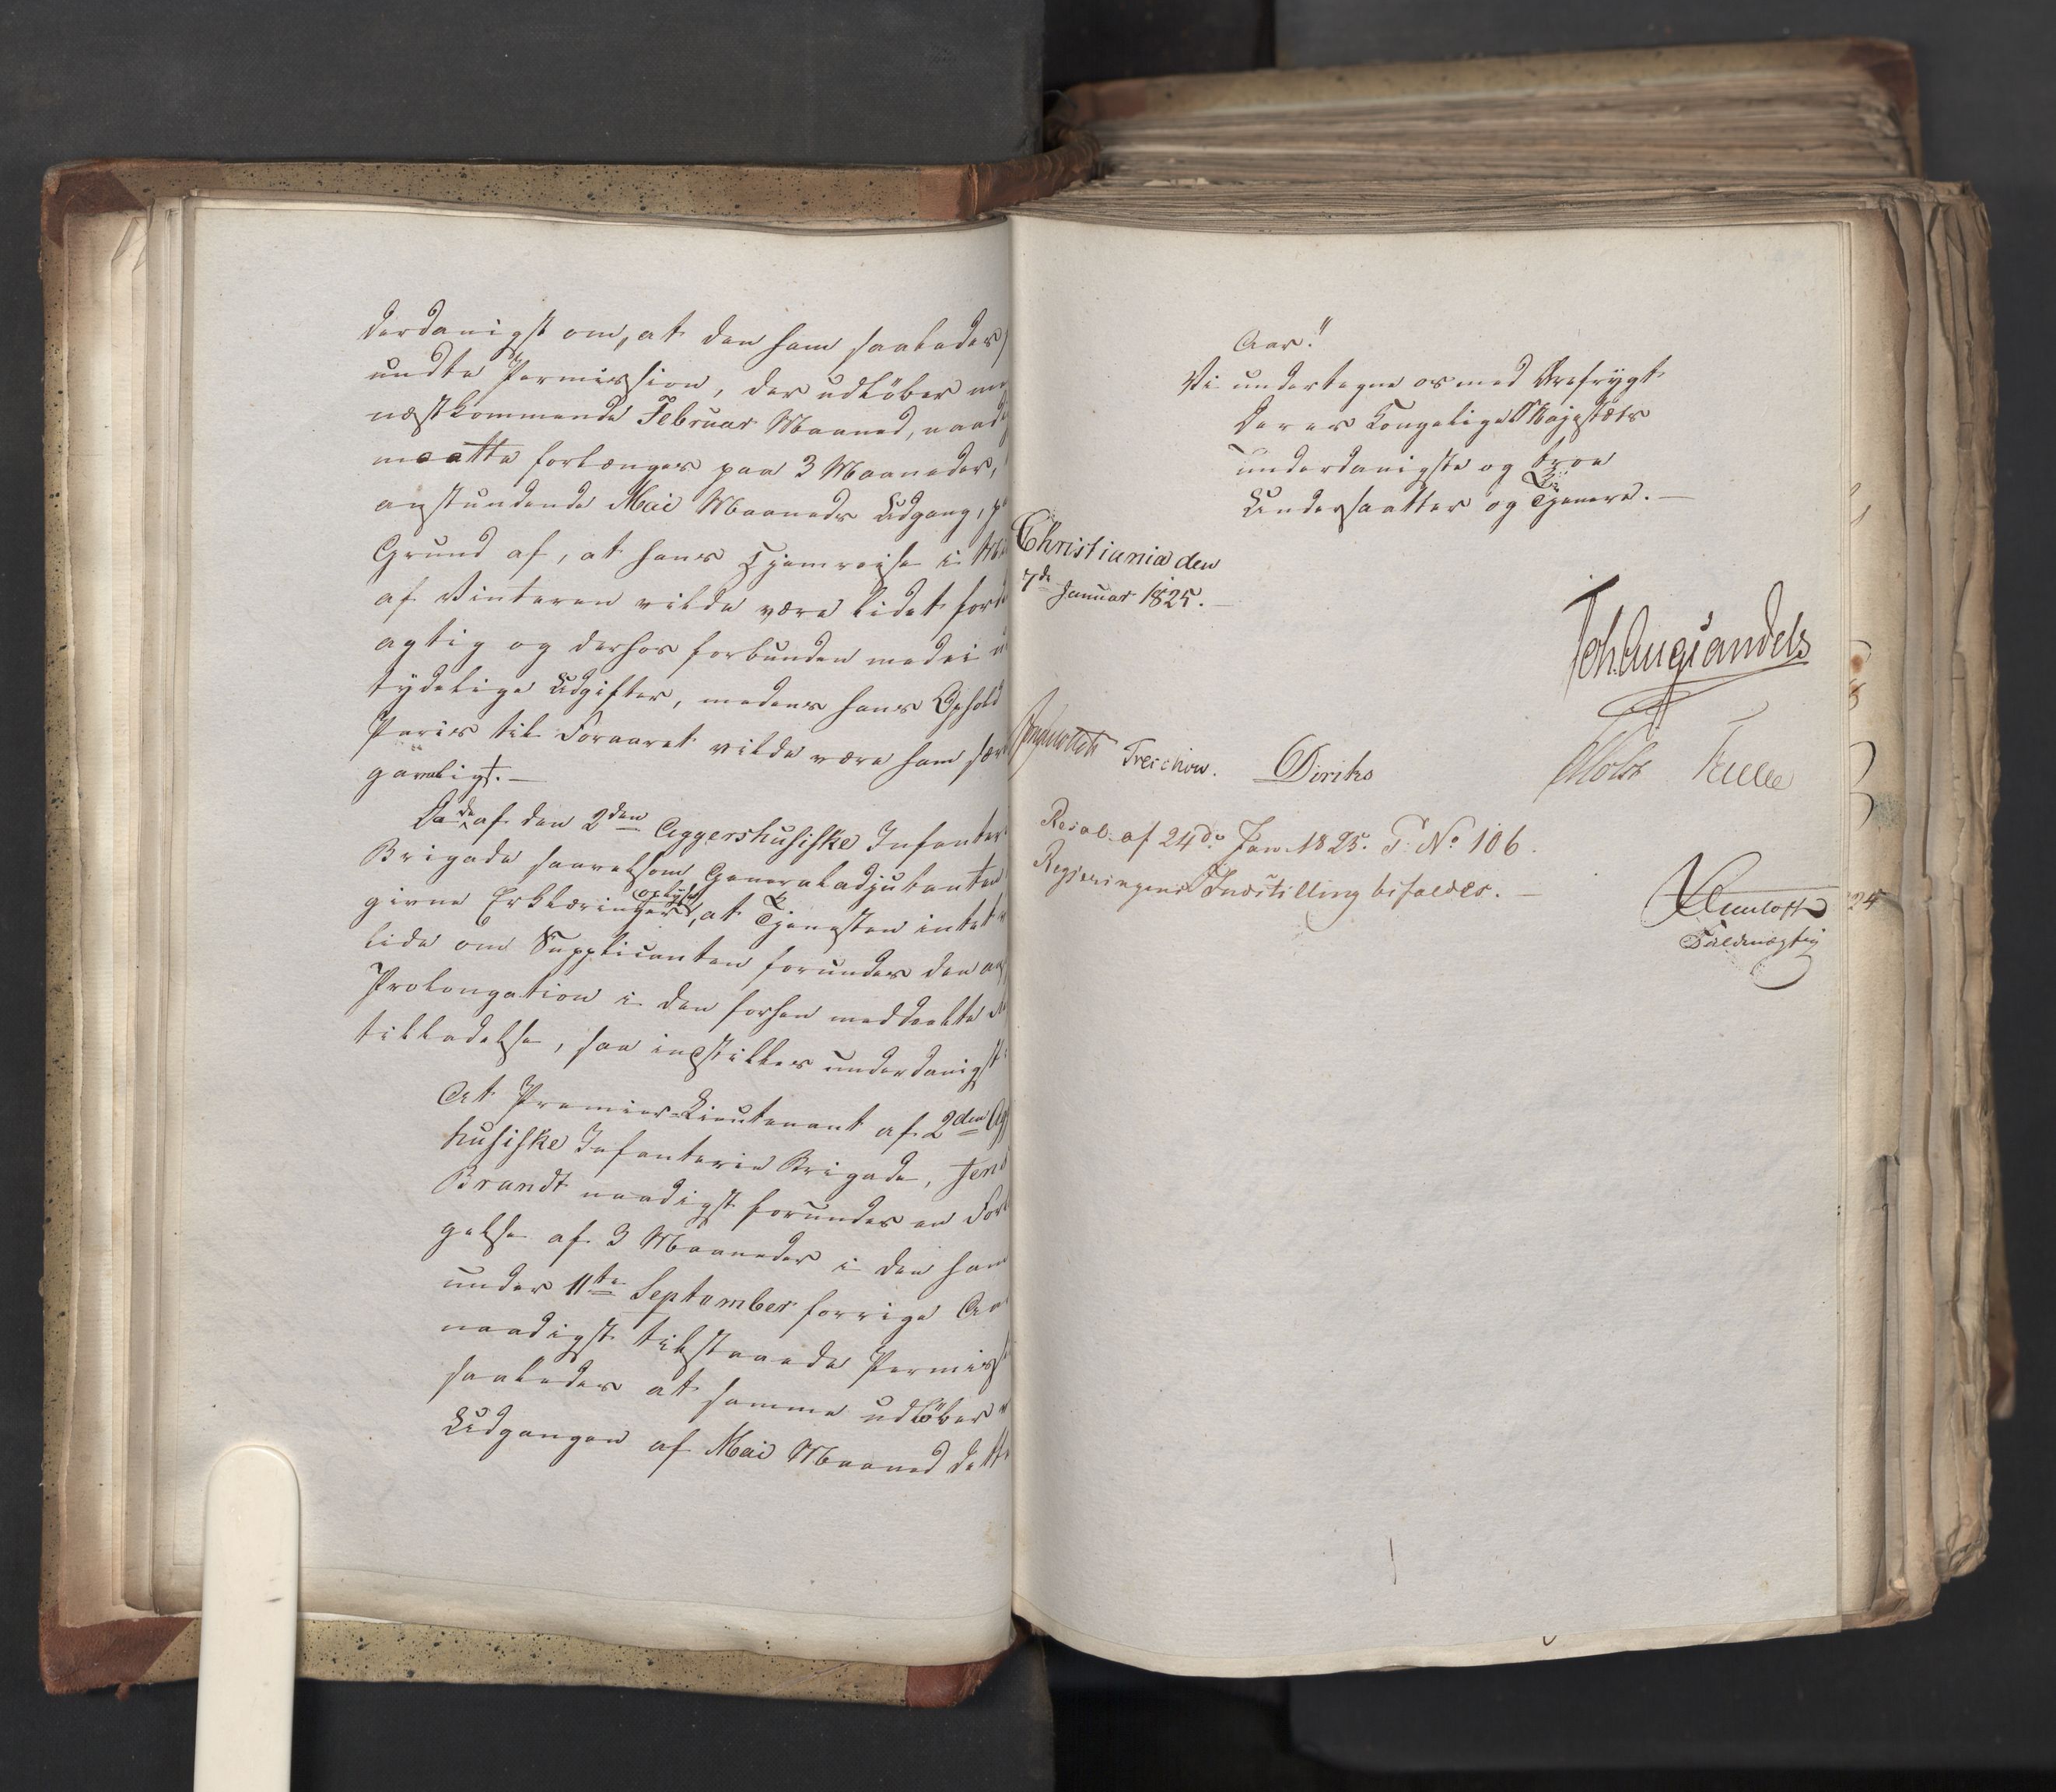 derdanigst om, at den ham saaledes
undte Permission, der udløber me
næstkommende Februar Maaned, naad
maatte forlænges paa 3 Maaneder,
anstundende Mai Maaneds Udgang, p
Grund af, at hans Hjemreise i Mi
af Vinteren vilde være lidet ford
agtig og derhos forbunden med ei u
tydelige Udgifter, medens hans Ophold
Paris til Foraaret vilde være ham sær
gavnligt. —
Da de af den 2den Aggershusiske Infanter
Brigade saavelsom Generaladjutanten
givne Erklæringer oplyse, at Tjenesten intet
lide om Supplicanten forundes den an
Prolongation i den forhen meddeelte
tilladelse, saa indstilles underdanigst
At Premier-Lieutenant af 2den Agg
husiske Infanterie Brigade, Jens
Brandt naadigst forundes en For
gelse af 3 Maaneder i den ham
under 11te September forrige Aa
naadigst tilstaaede Permis
saaledes at samme udløber
Udgangen af Mai Maaned dett
Aar."
Vi undertegne os med Ærefrygt
Deres Kongelige Majestæts
underdanigste og troe
Undersaatter og Tjenere. —
Christiania den
7de Januar 1825. —
Joh. Aug. Sandels
Treschow. Diriks Motzfeldt
Resol. af 24de Jan. 1825. P. No 106.
Regjeringens Indstilling bifaldes. —
Fuldmægtig
24